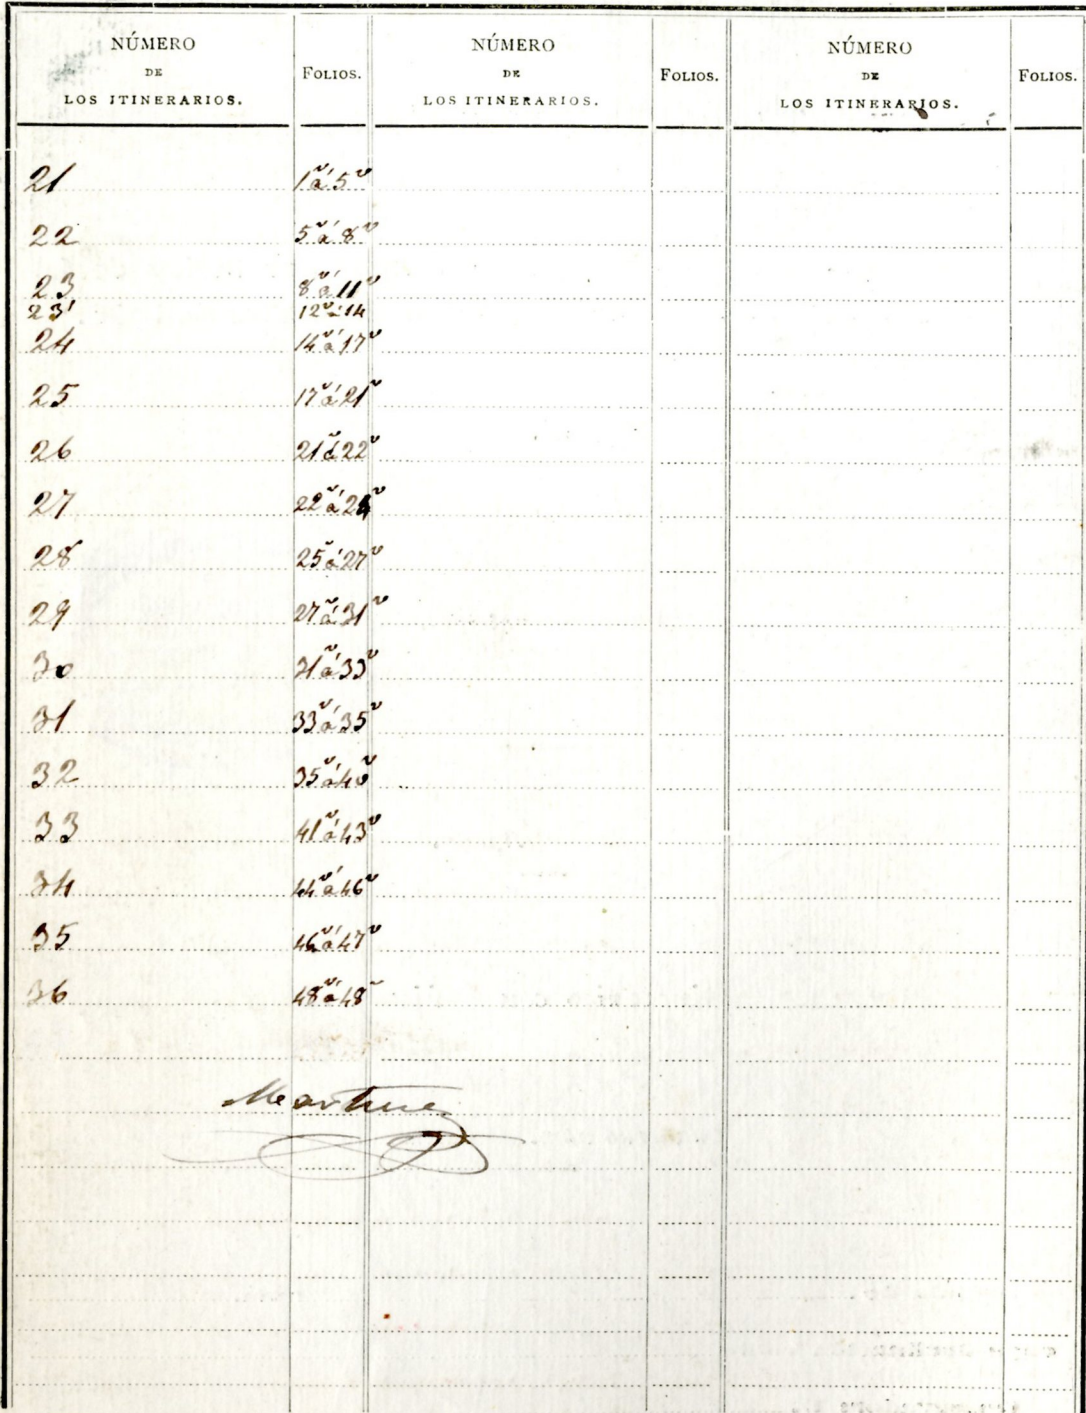 NÚMERO DE LOS ITINERARIOS. FOLIOS. NÚMERO DE LOS ITINERARIOS. FOLIOS. NÚMERO DE LOS ITINERARIOS. FOLIOS.
21 1ᵛ á 5ᵛ
22 5ᵛ á 8ᵛ
23 8ᵛ á 11ᵛ
23' 12ᵛ á 14
24 14ᵛ á 17ᵛ
25 17ᵛ á 21ᵛ
26 21ᵛ á 22ᵛ
27 22ᵛ á
28 25ᵛ á 27ᵛ
29 27ᵛ á 31ᵛ
30 31ᵛ á 33ᵛ
31 33ᵛ á 35ᵛ
32 35ᵛ á 40ᵛ
33 41ᵛ á 43ᵛ
34 44ᵛ á 46ᵛ
35 46ᵛ á 47ᵛ
36 48ᵛ á 48ᵛ
Martinez